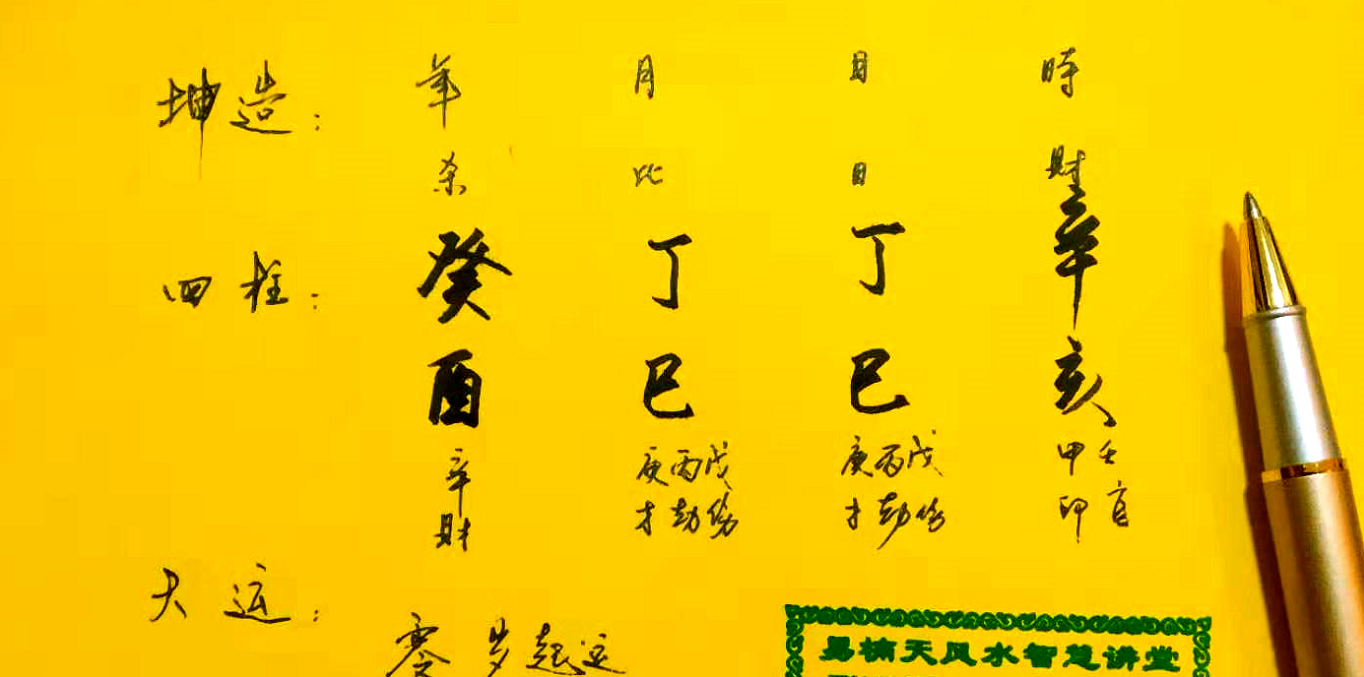 坤造： 年 月 日 時
杀 比 日 財
四柱： 癸 丁 丁 辛
酉 巳 巳 亥
辛 庚丙戊 庚丙戊 甲壬
財 才劫伤 才劫伤 印官
大运： 零岁起运
易楠天风水智慧讲堂